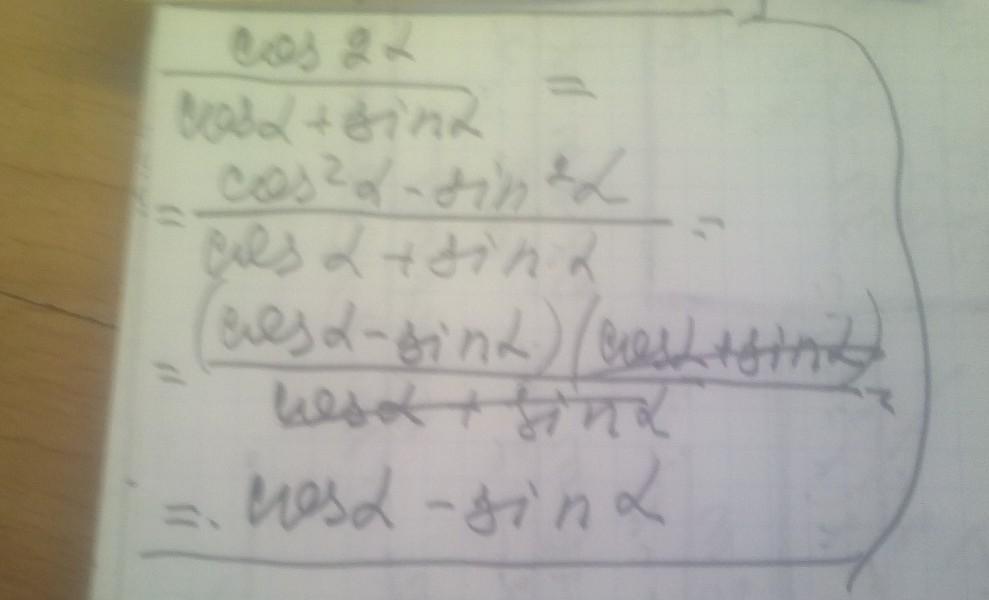 cos 2α
cosα + sinα =
= cos²α - sin²α
cos α + sin α =
= (cosα - sinα)(cosα + sinα)
cosα + sinα =
= cosα - sin α